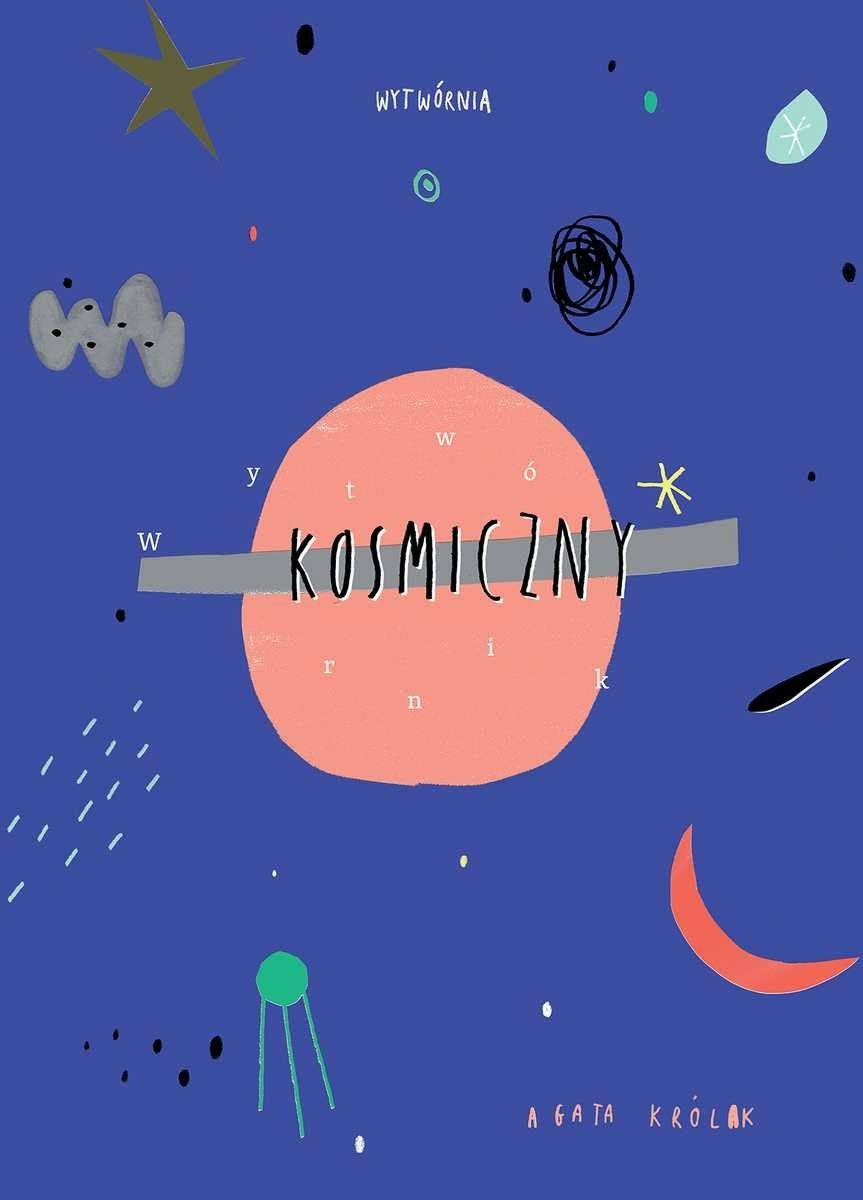 WYTWÓRNIA
wytwórnik
KOSMICZNY
AGATA KRÓLAK